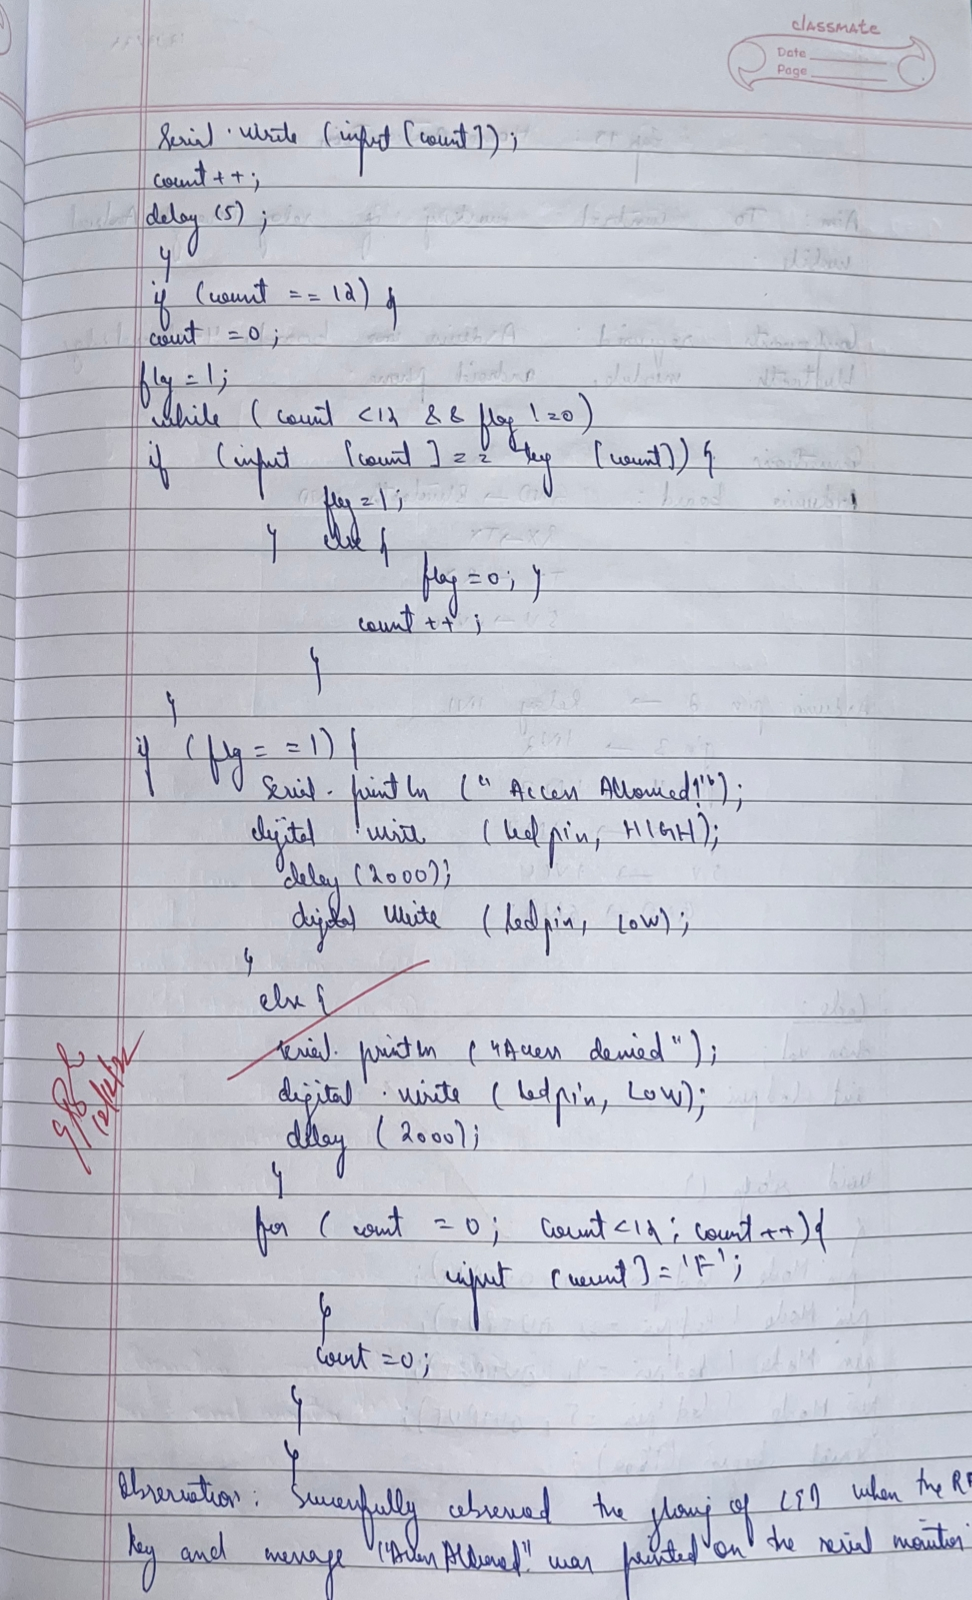 classmate
Date
Page
Serial . write (input [count]);
count ++;
delay (5) ;
}
if (count == 12) {
count = 0 ;
flag = 1;
while ( count <12 && flag != 0)
if (input [count] == key [count]) {
flag = 1;
} else {
flag = 0; }
count ++ ;
}
}
if (flag = = 1) {
Serial . println (" Access Allowed!");
digital write (ledpin, HIGH);
delay (2000);
digital write (ledpin, LOW);
}
else {
serial. println ("Access denied");
digital . write ( ledpin, LOW);
delay ( 2000);
}
for ( count = 0; count <12 ; count ++) {
input [count] = 'F';
}
count = 0;
}
}
Observation: Successfully observed the glowing of LED when the RF
key and message "Access Allowed" was printed on the serial monitor